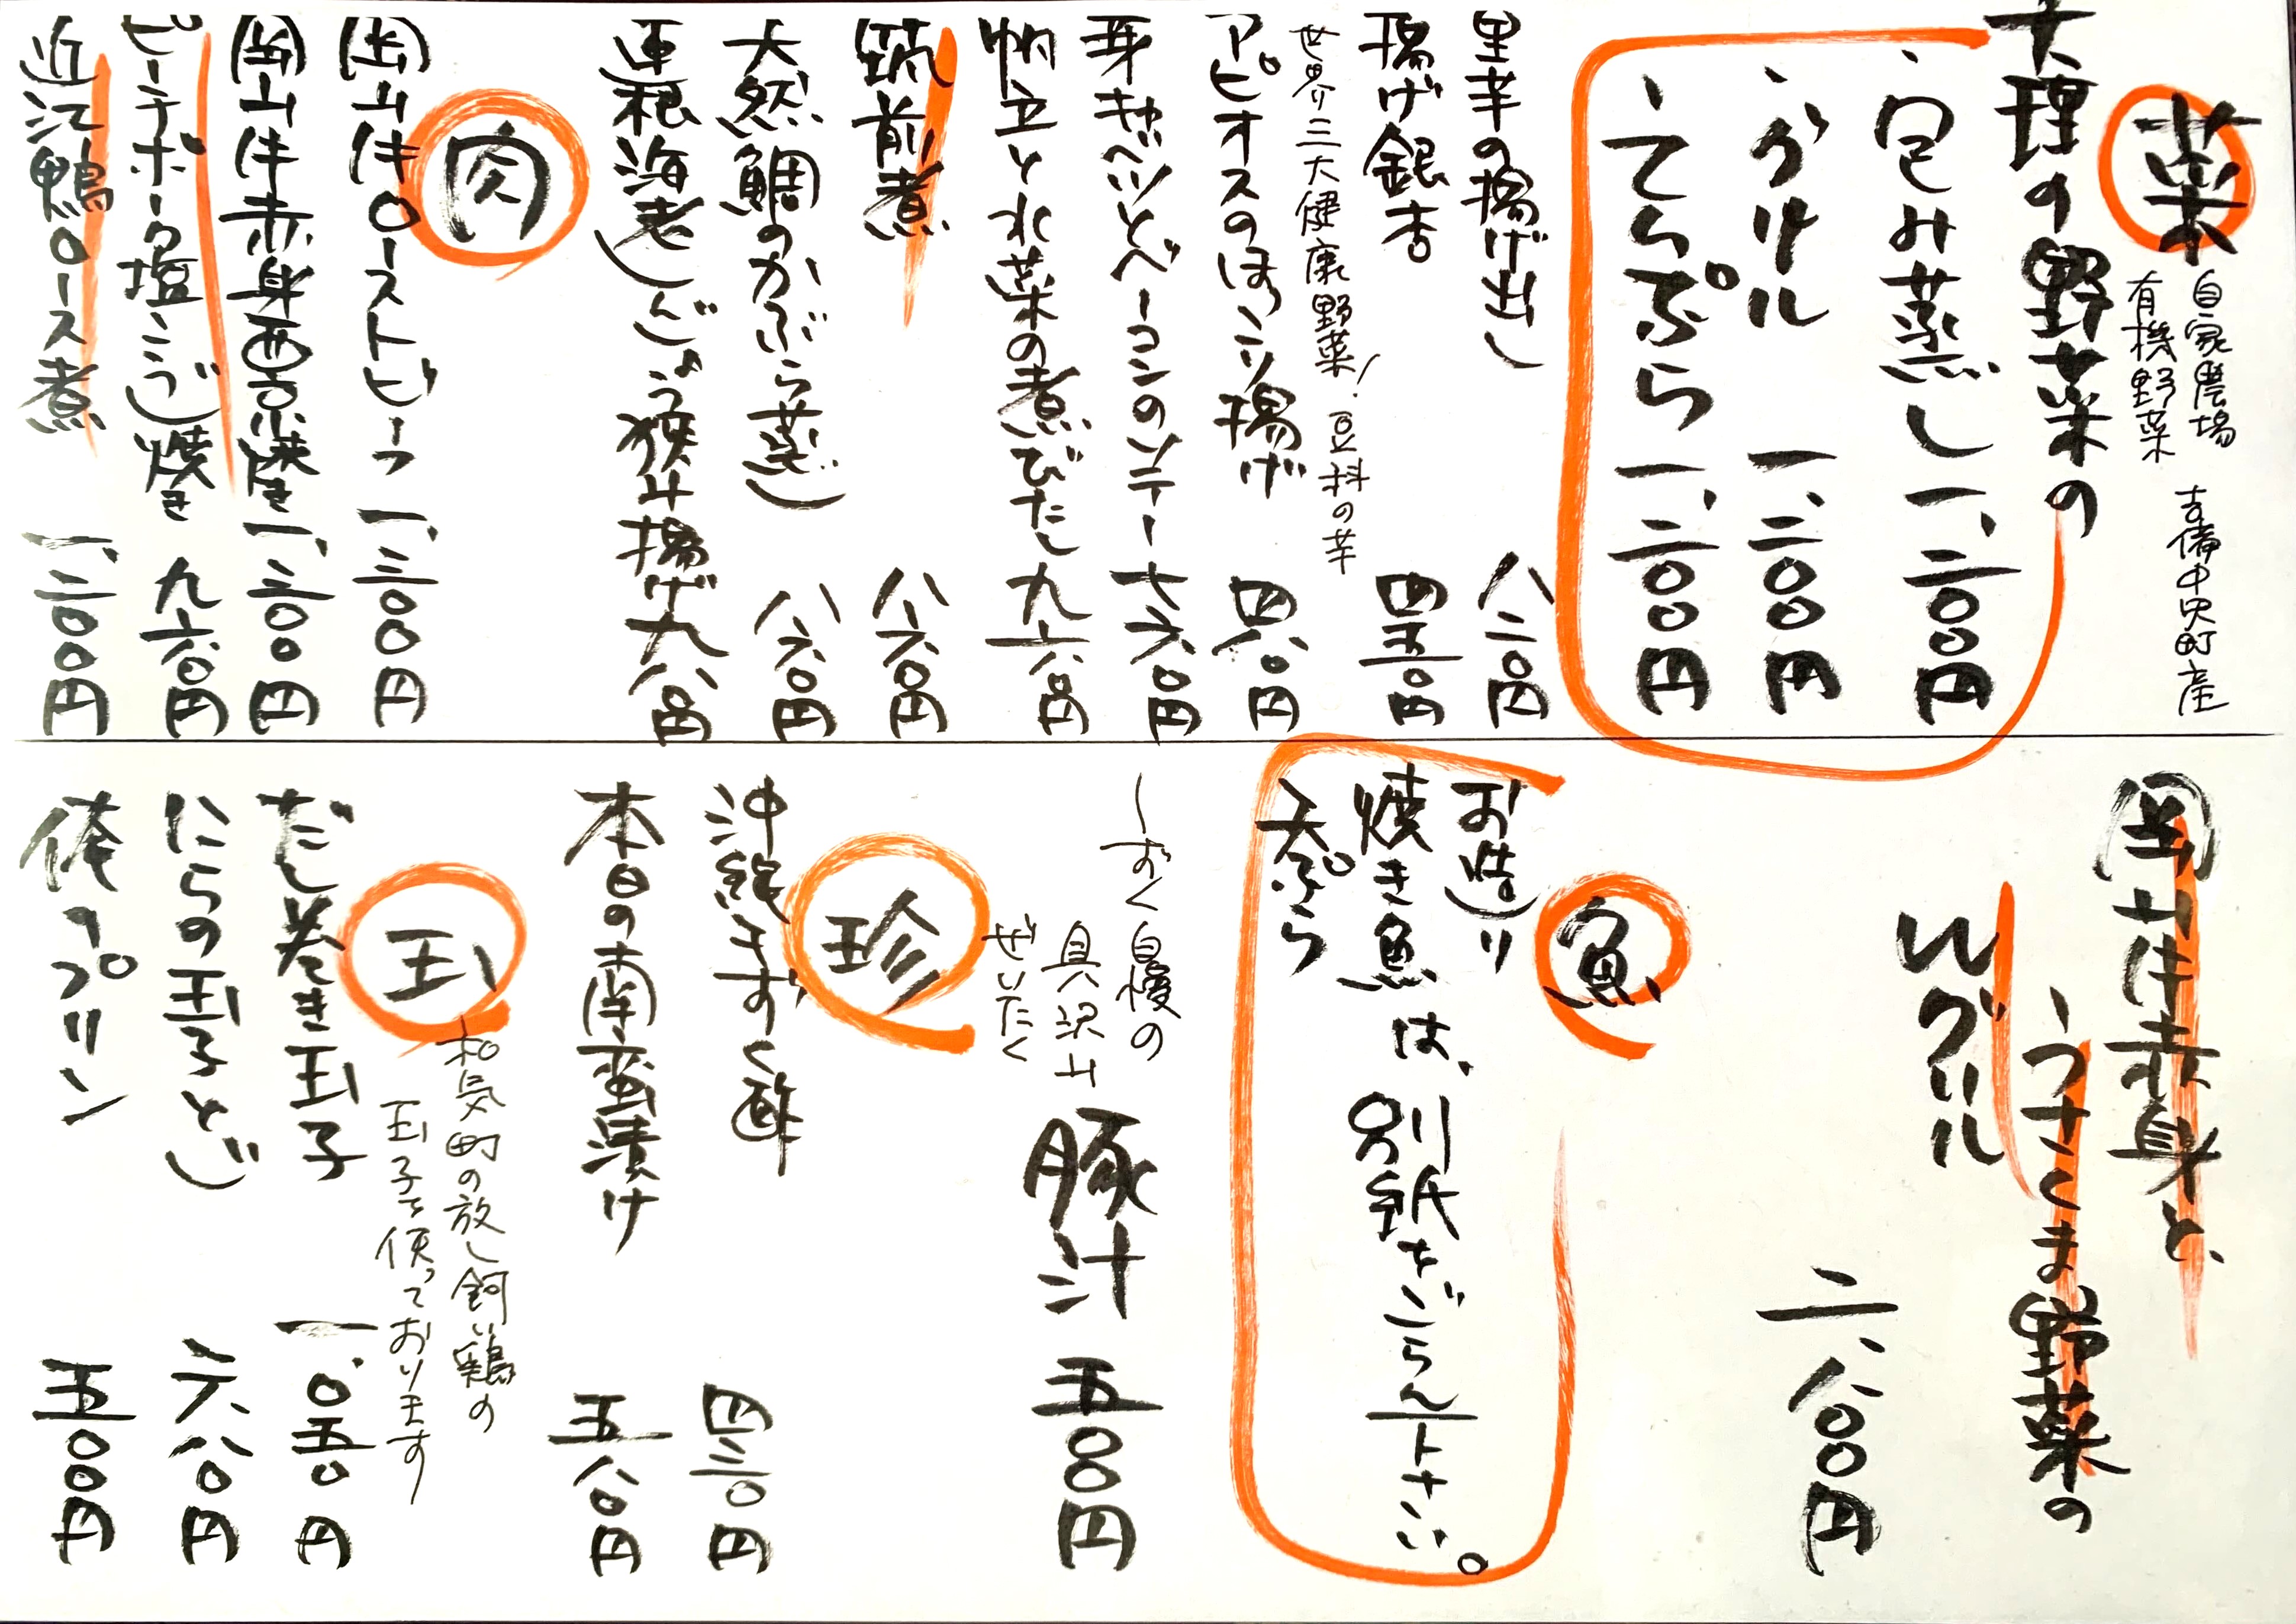 菜
自家農場
有機野菜
吉備中央町産
大理の野菜の
・包み蒸し 一、二〇〇円
・グリル 一、二〇〇円
・てんぷら 一、二〇〇円
里芋の揚げ出し 八二〇円
揚げ銀杏 四五〇円
世界三大健康野菜！豆科の芋
アピオスのほっこり揚げ 四八〇円
芽キャベツとベーコンのソテー 七六〇円
帆立と水菜の煮びたし 九六〇円
筑前煮 八六〇円
天然鯛のかぶら蒸し 八六〇円
蓮根海老しんじょう挟み揚げ 九八〇円
肉
岡山牛ローストビーフ 一、三〇〇円
岡山牛赤身西京焼き 一、三〇〇円
ピーチポーク塩こうじ焼き 九六〇円
近江鴨ロース煮 一、二〇〇円
岡山牛赤身と、
うさくま野菜の
Wグリル
二、八〇〇円
魚
お造り
焼き魚は、別紙をごらん下さい。
天ぷら
しずく自慢の
具沢山
ぜいたく
豚汁 五八〇円
珍
沖縄もずく酢 四三〇円
本日の南蛮漬け 五八〇円
玉
和気町の放し飼い鶏の
玉子を使っております
だし巻き玉子 一、〇五〇円
にらの玉子とじ 六八〇円
俺のプリン 五〇〇円